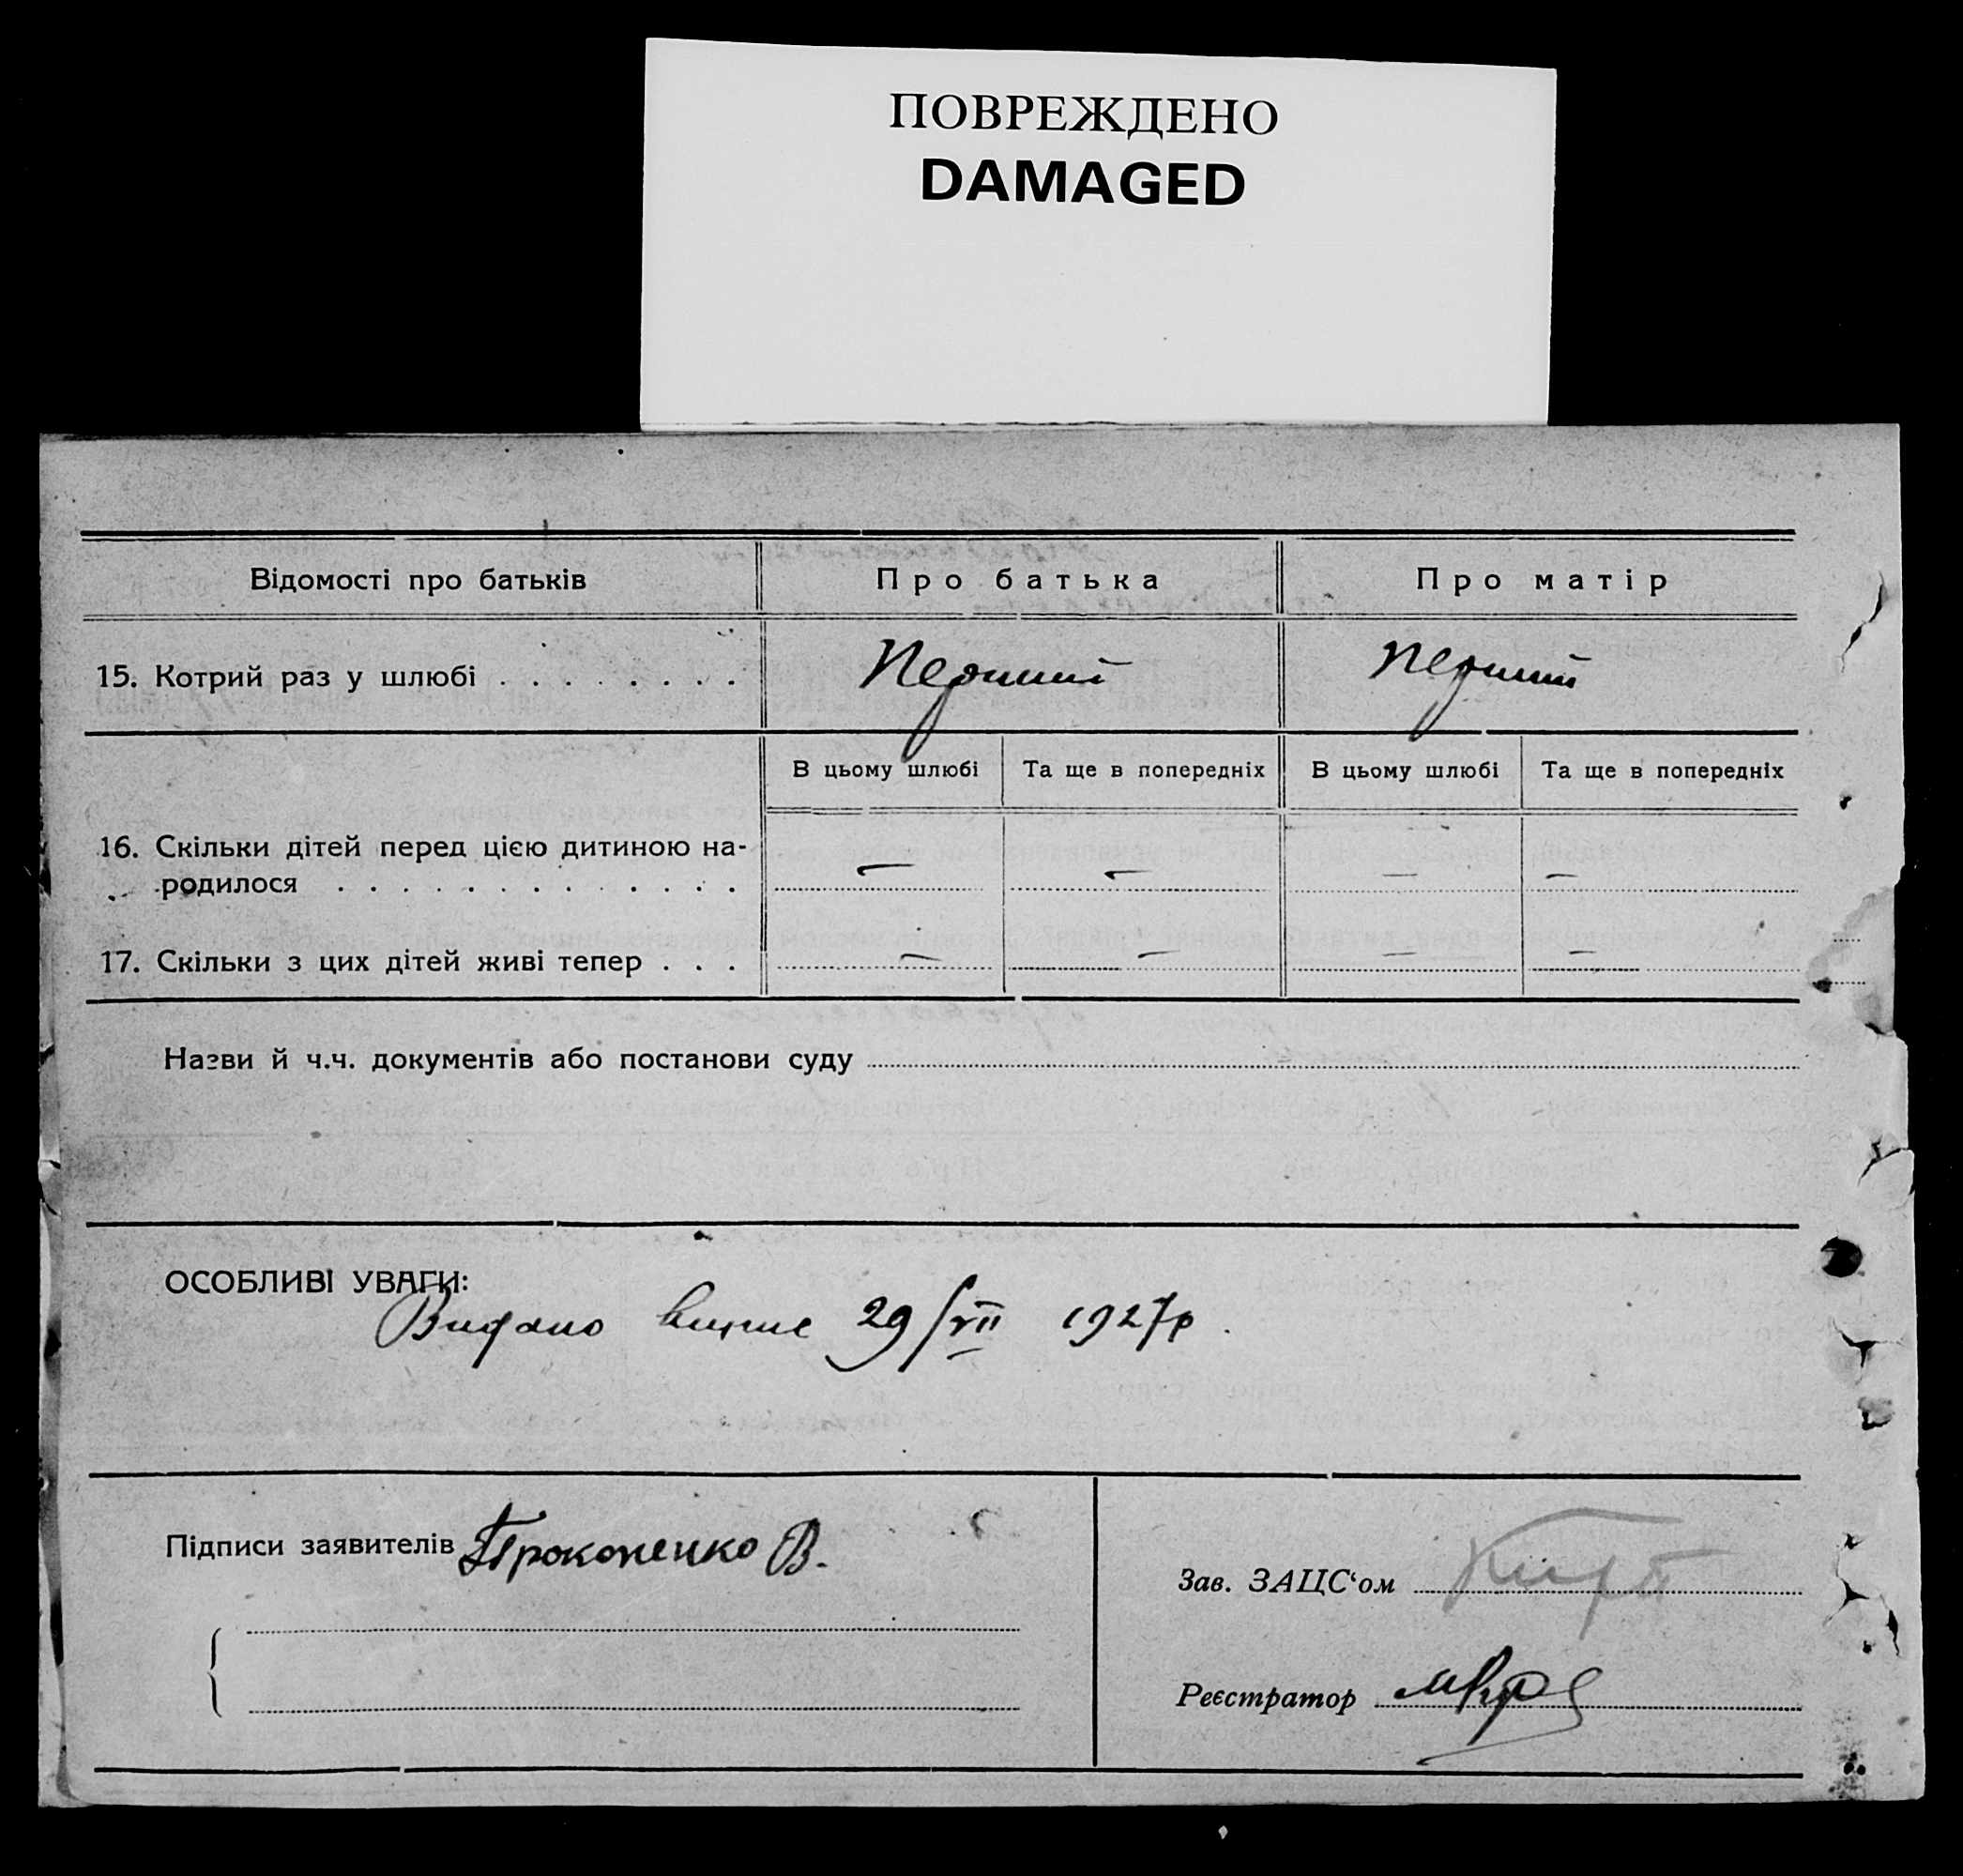 ПОВРЕЖДЕНО
DAMAGED
Відомості про батьків
Про батька
Про матір
15. Котрий раз у шлюбі . . . . . . . .
Перший
Перший
В цьому шлюбі
Та ще в попередніх
В цьому шлюбі
Та ще в попередніх
16. Скільки дітей перед цією дитиною на-
родилося . . . . . . . . . . . . .
— — — —
17. Скільки з цих дітей живі тепер . . .
— — — —
Назви й ч.ч. документів або постанови суду
ОСОБЛИВІ УВАГИ:
Видано 29/VII 1927р.
Підписи заявителів Прокопенко В.
Зав. ЗАЦС‘ом
Реєстратор